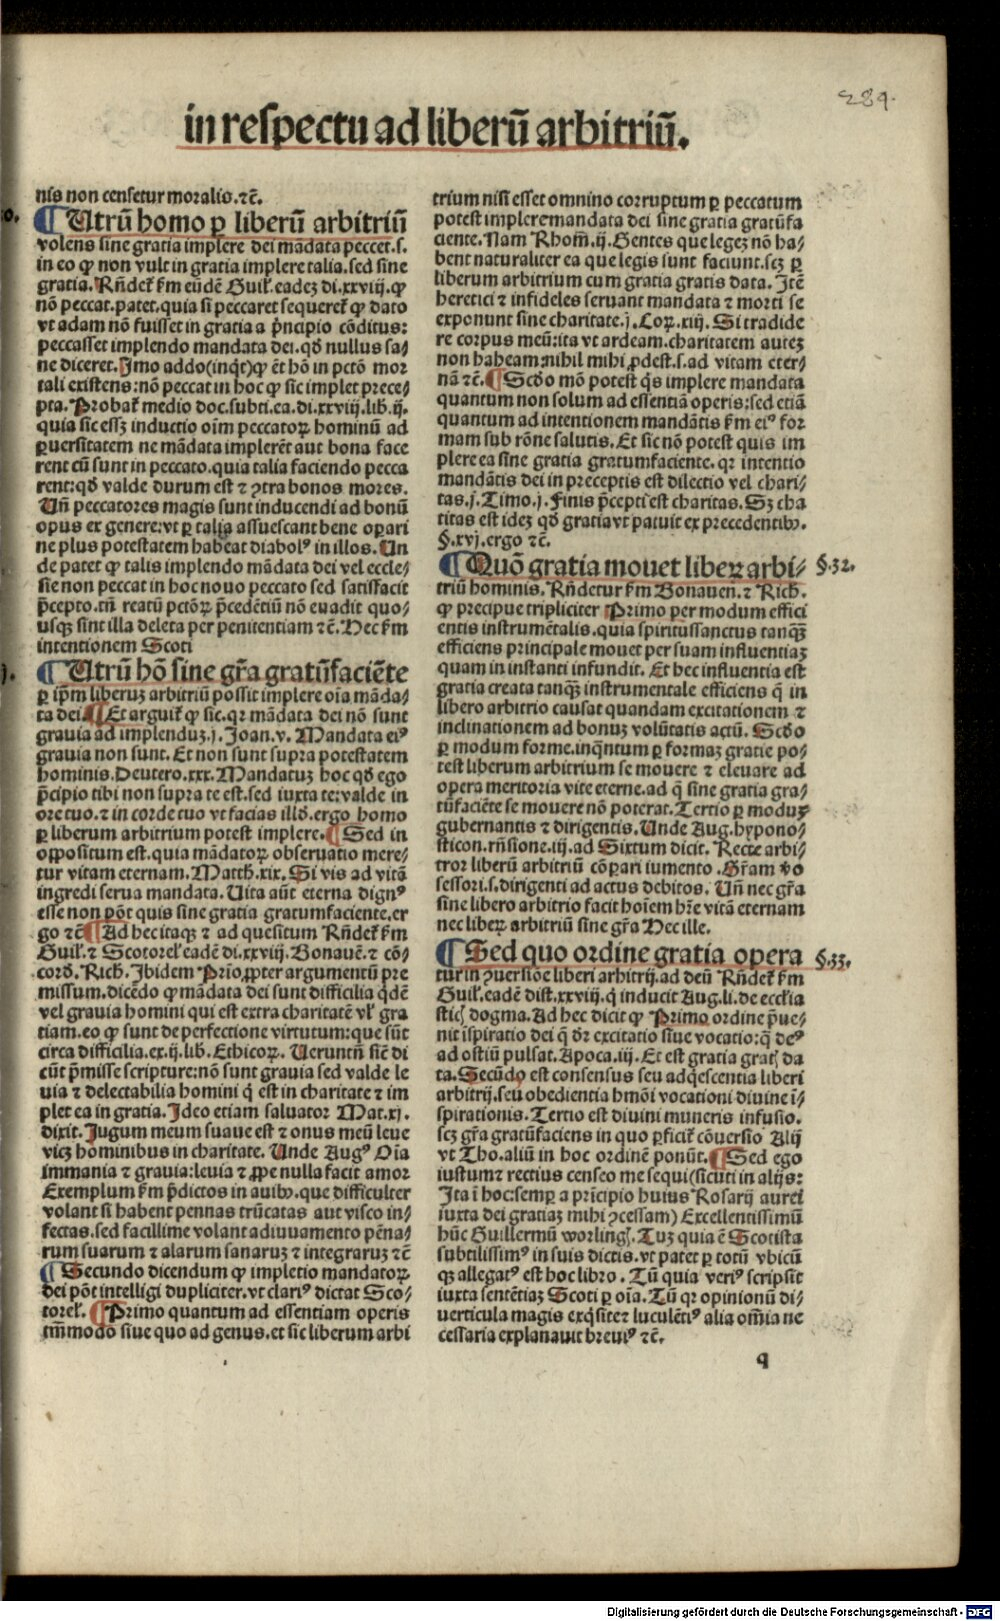 289.
in respectu ad liberū arbitriū.
nis non censetur moralis.⁊c̄.
0.
¶ Utrū homo ꝑ liberū arbitriū
volens sine gratia implere dei mādata peccet.s.
in eo ꝙ non vult in gratia implere talia.sed sine
gratia. Rn̄det̄ ẜm eūdē Guil̄.eadeꝫ di.xxviij.ꝙ
nō peccat.patet.quia si peccaret sequeret̄ ꝙ dato
vt adam nō fuisset in gratia a pͥncipio cōditus:
peccasset implendo mandata dei.qđ nullus sa⸗
ne diceret. Imo addo(inqͥt)ꝙ et̄ hō in pctō mor
tali existens:nō peccat in hoc ꝙ sic implet prece⸗
pta. Probat̄ medio doc.subti.ea.di.xxviij.lib.ij.
quia sic essꝫ inductio oīm peccatoꝝ hominū ad
ꝑuersitatem ne mādata implerēt aut bona face
rent cū sunt in peccato.quia talia faciendo pecca
rent:qđ valde durum est ⁊ ꝯtra bonos mores.
Un̄ peccatores magis sunt inducendi ad bonū
opus ex genere:vt ꝑ talia assuescant bene opari
ne plus potestatem habeat diabolꝰ in illos. Un
de patet ꝙ talis implendo mādata dei vel eccle⸗
sie non peccat in hoc nouo peccato sed satisfacit
p̄cepto.tn̄ reatū pctōꝝ p̄cedētiū nō euadit quo⸗
usqꝫ sint illa deleta per penitentiam ⁊c̄. Hec ẜm
intentionem Scoti
).
¶ Utrū hō sine gr̄a gratūfaciēte
ꝑ ip̄m liberuꝫ arbitriū possit implere oīa māda⸗
ta dei. ¶ Et arguit̄ ꝙ sic.qr mādata dei nō sunt
grauia ad implenduꝫ.j. Joan.v. Mandata eiꝰ
grauia non sunt. Et non sunt supra potestatem
hominis. Deutero.xxx. Mandatuꝫ hoc qđ ego
p̄cipio tibi non supra te est.sed iuxta te:valde in
ore tuo.⁊ in corde tuo vt facias illđ.ergo homo
ꝑ liberum arbitrium potest implere. ¶ Sed in
oppositum est.quia mādatoꝝ obseruatio mere⸗
tur vitam eternam. Matth.xix. Si vis ad vitā
ingredi serua mandata. Uita aūt eterna dignꝰ
esse non pōt quis sine gratia gratumfaciente.er
go ⁊c̄ ¶ Ad hec itaqꝫ ⁊ ad quesitum Rn̄det̄ ẜm
Guil̄.⁊ Scotorel̄ eadē di.xxviij. Bonauē.⁊ cō⸗
corđ. Rich̄. Ibidem Prīo ꝓpter argumentū pre
missum.dicēdo ꝙ mādata dei sunt difficilia qͥdē
vel grauia homini qui est extra charitatē vl̓ gra
tiam.eo ꝙ sunt de perfectione virtutum:que sūt
circa difficilia.ex.ij.lib̄. Ethicoꝝ. Ueruntn̄ sic̄ di
cūt p̄misse scripture:nō sunt grauia sed valde le
uia ⁊ delectabilia homini qͥ est in charitate ⁊ im
plet ea in gratia. Ideo etiam saluator Mat.xj.
dixit. Jugum meum suaue est ⁊ onus meū leue
vicꝫ hominibus in charitate. Unde Augꝰ Oīa
immania ⁊ grauia:leuia ⁊ ꝓpe nulla facit amor
Exemplum ẜm p̄dictos in auibꝰ.que difficulter
volant si habent pennas trūcatas aut visco in⸗
fectas.sed facillime volant adiuuamento pēna⸗
rum suarum ⁊ alarum sanaruꝫ ⁊ integraruꝫ ⁊c̄
¶ Secundo dicendum ꝙ impletio mandatoꝝ
dei pōt intelligi dupliciter.vt clariꝰ dictat Sco⸗
torel̄. ¶ Primo quantum ad essentiam operis
tm̄modo siue quo ad genus.et sic liberum arbi
trium nisi esset omnino corruptum ꝑ peccatum
potest implere mandata dei sine gratia gratūfa
ciente. Nam Rhom̄.ij. Gentes que legeꝫ nō ha⸗
bent naturaliter ea que legis sunt faciunt.scꝫ ꝑ
liberum arbitrium cum gratia gratis data. Itē
heretici ⁊ infideles seruant mandata ⁊ morti se
exponunt sine charitate.j. Coꝝ.xiij. Si tradide
re corpus meū:ita vt ardeam.charitatem auteꝫ
non habeam:nihil mihi ꝓdest.s.ad vitam eter⸗
nā ⁊c̄. ¶ Scđo mō potest qͥs implere mandata
quantum non solum ad essentiā operis:sed etiā
quantum ad intentionem mandātis ẜm eiꝰ for
mam sub rōne salutis. Et sic nō potest quis im
plere ea sine gratia gratumfaciente.qr intentio
mandātis dei in preceptis est dilectio vel chari⸗
tas.j. Timo.j. Finis p̄cepti est charitas. Sꝫ cha
ritas est ideꝫ qđ gratia vt patuit ex precedentibꝰ.
§.xvj.ergo ⁊c̄.
¶ Quō gratia mouet libeꝝ arbi⸗
§.32.
triū hominis. Rn̄detur ẜm Bonauen.⁊ Rich̄.
ꝙ precipue tripliciter Primo per modum effici
entis instrumētalis.quia spiritussanctus tanqꝫ
efficiens principale mouet per suam influentiaꝫ
quam in instanti infundit. Et hec influentia est
gratia creata tanqꝫ instrumentale efficiens qͥ in
libero arbitrio causat quandam excitationem ⁊
inclinationem ad bonuꝫ volūtatis actū. Scđo
ꝑ modum forme.inqͣntum ꝑ formaꝫ gratie po⸗
test liberum arbitrium se mouere ⁊ eleuare ad
opera meritoria vite eterne.ad qͥ sine gratia gra⸗
tūfaciēte se mouere nō poterat. Tertio ꝑ moduꝫ
gubernantis ⁊ dirigentis. Unde Aug.hypono⸗
sticon.rn̄sione.iij.ad Sixtum dicit. Recte arbi⸗
tror liberū arbitriū cōpari iumento. Gr̄am v̄o
sessori.s.dirigenti ad actus debitos. Un̄ nec gr̄a
sine libero arbitrio facit hoīem hr̄e vitā eternam
nec libeꝝ arbitriū sine gr̄a Hec ille.
¶ Sed quo ordine gratia opera
§.33.
tur in ꝯuersiōe liberi arbitrij.ad deū Rn̄det̄ ẜm
Guil̄.eadē dist.xxviij.qͥ inducit Aug.li.de eccl̓ia
stic̄ dogma. Ad hec dicit ꝙ Primo ordine p̄ue⸗
nit īspiratio dei qͥ dr̄ excitatio siue vocatio:qͥ deꝰ
ad ostiū pulsat. Apoca.iij. Et est gratia grat̄ da
ta. Secūdo est consensus seu adqͥescentia liberi
arbitrij.seu obedientia hmōi vocationi diuine ī⸗
spirationis. Tertio est diuini muneris infusio.
scꝫ gr̄a gratūfaciens in quo ꝑficit̄ cōuersio Alij
vt Tho.aliū in hoc ordinē ponūt. ¶ Sed ego
iustum ⁊ rectius censeo me sequi(sicuti in alijs:
Ita ī hoc:semꝑ a principio huius Rosarij aurei
iuxta dei gratiaꝫ mihi ꝯcessam) Excellentissimū
hūc Guillermū worlingͦ. Tuꝫ quia ē Scotista
subtilissimꝰ in suis dictis.vt patet ꝑ totū vbicū
qꝫ allegatꝰ est hoc libro. Tū quia veriꝰ scripsit
iuxta sentētiaꝫ Scoti ꝑ oīa. Tū qr opinionū di⸗
uerticula magis exqͥsite ⁊ luculētiꝰ alia om̄ia ne
cessaria explanauit breuiꝰ ⁊c̄.
q
Digitalisierung gefördert durch die Deutsche Forschungsgemeinschaft - DFG